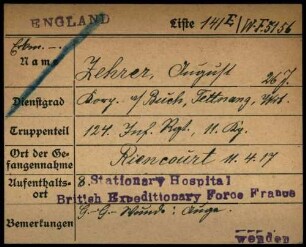 ENGLAND
Liste 141/E/W.F.5156
Name Zehrer, August 26 J.
Dienstgrad Korp. v/Buch, Tettnang,
Truppenteil 124. Inf. Rgt. 11. Kg.
Ort der Ge-
fangennahme Riencourt 11.4.17
Aufenthalts-
ort 8. Stationary Hospital
British Expeditionary Force France
Bemerkungen Wunde: Auge.
wenden